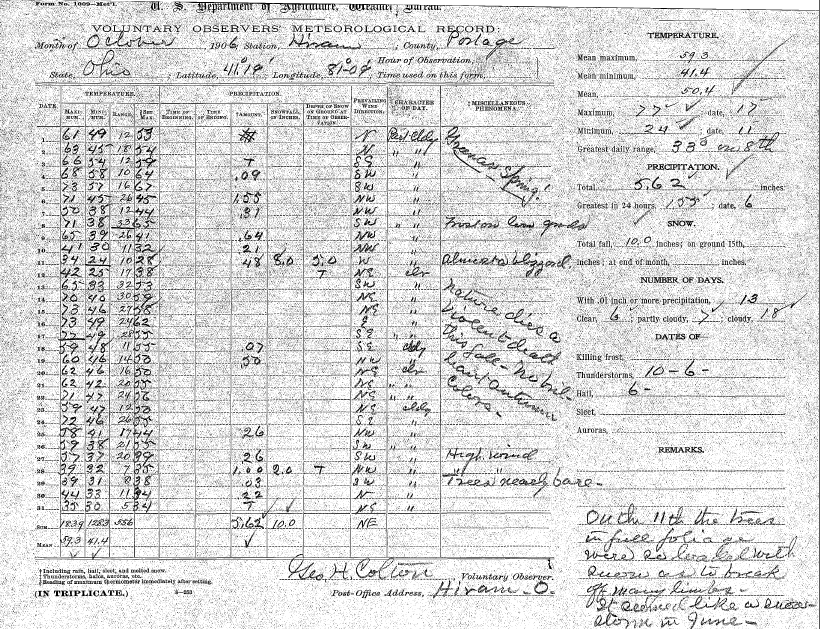 Form No. 1009—Met'l.
U. S. Department of Agriculture, Weather Bureau.
VOLUNTARY OBSERVERS' METEOROLOGICAL RECORD:
Month of October, 1906 Station, Hiram; County, Portage
State, Ohio; Latitude, 41°19'; Longitude, 81°09'; Hour of Observation,
Time used on this form.
DATE. TEMPERATURE. PRECIPITATION. PREVAILING WIND DIRECTION. CHARACTER OF DAY. MISCELLANEOUS PHENOMENA.
MAXIMUM. MINIMUM. RANGE. SET MAX. TIME OF BEGINNING. TIME OF ENDING. AMOUNT. SNOWFALL IN INCHES. DEPTH OF SNOW ON GROUND AT TIME OF OBSERVATION.
1 61 49 12 53 N Part Cldy
2 63 45 18 54 N " "
3 66 54 12 59 T SE "
4 68 58 10 64 .09 SW "
5 73 57 16 67 SW "
6 71 45 26 45 1.55 NW "
7 50 38 12 44 .31 NW "
8 71 38 33 65 SW " " Frost on low grounds
9 65 39 26 41 .64 NW "
10 41 30 11 32 21 NW "
11 34 24 10 28 48 8.0 5.0 W " Almost a blizzard.
12 42 25 17 38 T NE clr
13 65 33 32 53 SW "
14 70 40 30 59 NE " Nature dies a
15 73 46 27 58 NE " violent death
16 73 49 24 62 E " this fall - No bril-
17 77 49 28 55 SE " liant autumn
18 59 48 11 55 .07 SE cldy colors -
19 60 46 14 50 .50 NW "
20 62 46 16 50 NE clr
21 62 42 20 55 NE " "
22 71 47 24 56 NE "
23 59 47 12 50 NE cldy
24 72 46 26 55 SE "
25 58 41 17 44 26 NW "
26 59 38 21 55 SW " "
27 57 37 20 39 .26 SW " High wind
28 39 32 7 35 1.00 2.0 T NW " " "
29 39 31 8 38 .03 SW " Trees nearly bare -
30 44 33 11 34 .22 N "
31 35 30 5 34 T NE "
SUM 1839 1283 556 5.62 10.0 NE
MEAN 59.3 41.4
*Including rain, hail, sleet, and melted snow.
†Thunderstorms, halos, auroras, etc.
‡Reading of maximum thermometer immediately after setting.
(IN TRIPLICATE.)
Geo. H. Colton Voluntary Observer.
Post-Office Address, Hiram - O.
TEMPERATURE.
Mean maximum, 59.3
Mean minimum, 41.4
Mean, 50.4
Maximum, 77; date, 17
Minimum, 24; date, 11
Greatest daily range, 33° on 8th
PRECIPITATION.
Total, 5.62 inches
Greatest in 24 hours, 1.55; date, 6
SNOW.
Total fall, 10.0 inches; on ground 15th,
inches; at end of month, inches.
NUMBER OF DAYS.
With .01 inch or more precipitation, 13
Clear, 6; partly cloudy, 7; cloudy, 18
DATES OF
Killing frost,
Thunderstorms, 10 - 6 -
Hail, 6 -
Sleet,
Auroras,
REMARKS.
On the 11th the trees
in full foliage
were so loaded with
snow as to break
off many limbs -
It seemed like a snow
storm in June -